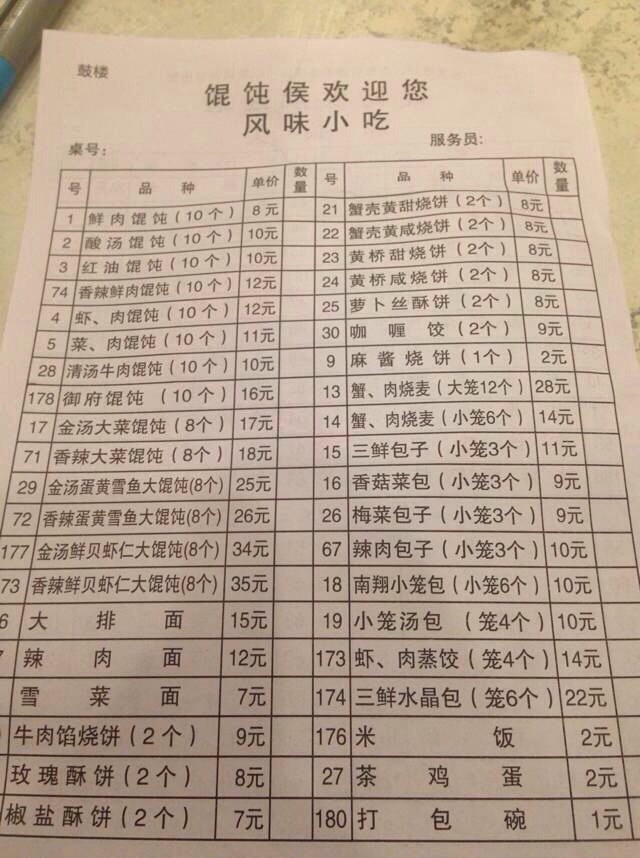 鼓楼
馄饨侯欢迎您
风味小吃
桌号: 服务员:
号 品种 单价 数量 号 品种 单价 数量
1 鲜肉馄饨(10个) 8元 21 蟹壳黄甜烧饼(2个) 8元
2 酸汤馄饨(10个) 10元 22 蟹壳黄咸烧饼(2个) 8元
3 红油馄饨(10个) 10元 23 黄桥甜烧饼(2个) 8元
74 香辣鲜肉馄饨(10个) 12元 24 黄桥咸烧饼(2个) 8元
4 虾、肉馄饨(10个) 12元 25 萝卜丝酥饼(2个) 8元
5 菜、肉馄饨(10个) 11元 30 咖喱饺(2个) 9元
28 清汤牛肉馄饨(10个) 10元 9 麻酱烧饼(1个) 2元
178 御府馄饨(10个) 16元 13 蟹、肉烧麦(大笼12个) 28元
17 金汤大菜馄饨(8个) 17元 14 蟹、肉烧麦(小笼6个) 14元
71 香辣大菜馄饨(8个) 18元 15 三鲜包子(小笼3个) 11元
29 金汤蛋黄雪鱼大馄饨(8个) 25元 16 香菇菜包(小笼3个) 9元
72 香辣蛋黄雪鱼大馄饨(8个) 26元 26 梅菜包子(小笼3个) 9元
177 金汤鲜贝虾仁大馄饨(8个) 34元 67 辣肉包子(小笼3个) 10元
73 香辣鲜贝虾仁大馄饨(8个) 35元 18 南翔小笼包(小笼6个) 10元
6 大排面 15元 19 小笼汤包(笼4个) 10元
辣肉面 12元 173 虾、肉蒸饺(笼4个) 14元
雪菜面 7元 174 三鲜水晶包(笼6个) 22元
牛肉馅烧饼(2个) 9元 176 米饭 2元
玫瑰酥饼(2个) 8元 27 茶鸡蛋 2元
椒盐酥饼(2个) 7元 180 打包碗 1元